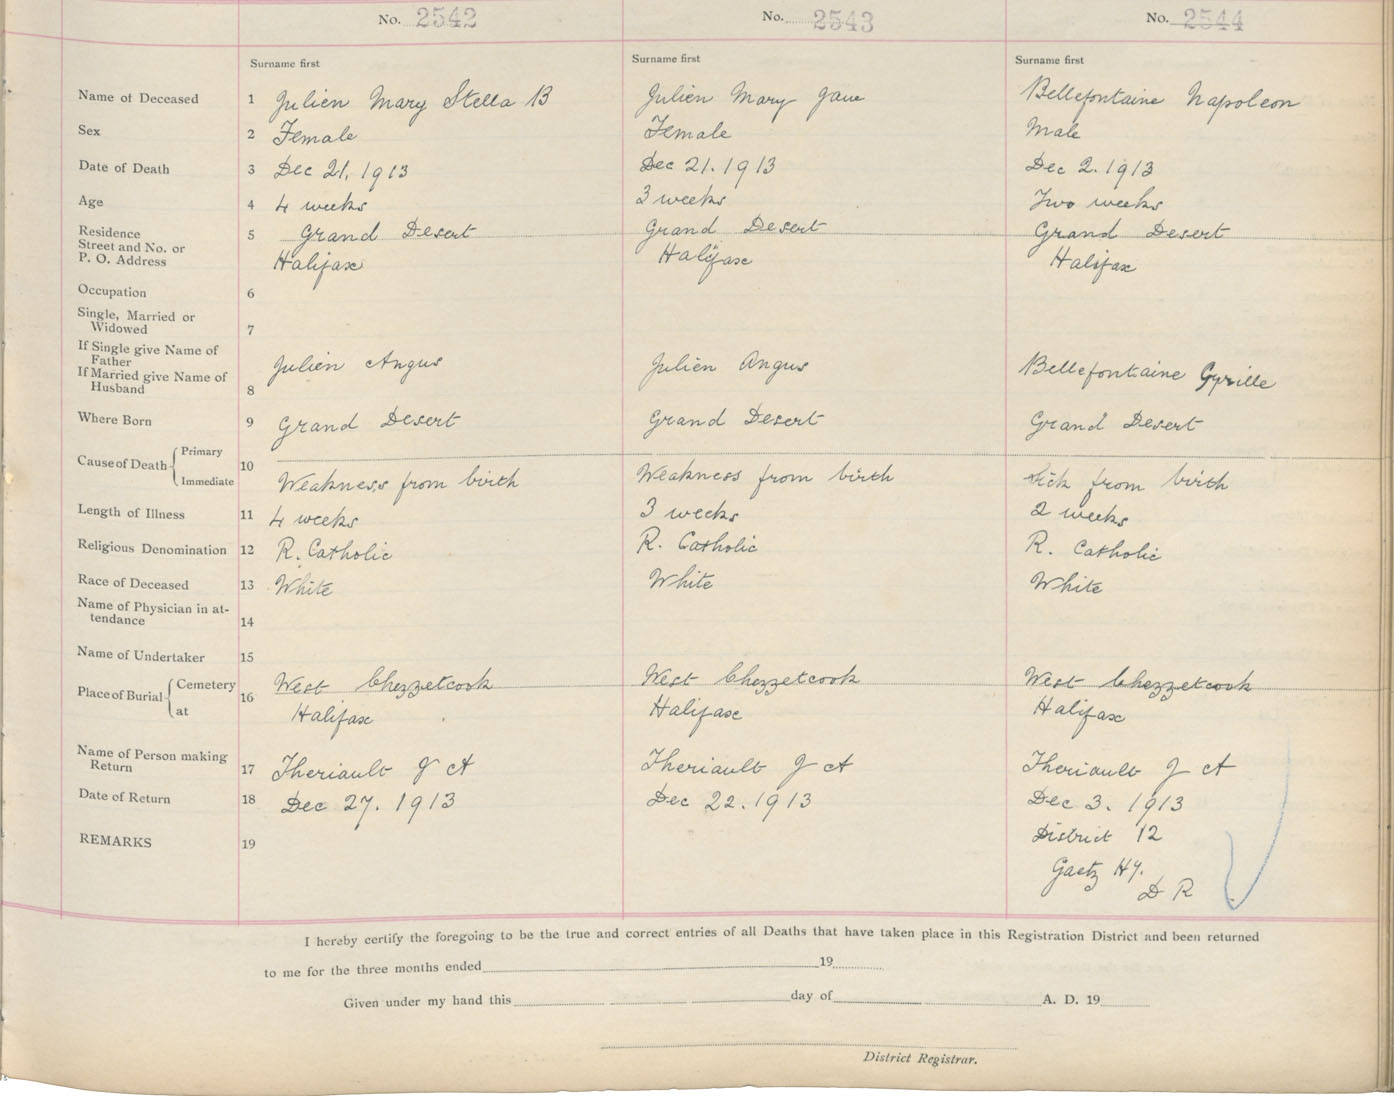 No. 2542 No. 2543 No. 2544
Surname first Surname first Surname first
Name of Deceased 1 Julien Mary Stella B Julien Mary Jane Bellefontaine Napoleon
Sex 2 Female Female Male
Date of Death 3 Dec 21, 1913 Dec 21. 1913 Dec 2. 1913
Age 4 4 weeks 3 weeks Two weeks
Residence 5 Grand Desert Grand Desert Grand Desert
Street and No. or
P. O. Address Halifax Halifax Halifax
Occupation 6
Single, Married or
Widowed 7
If Single give Name of
Father Julien Angus Julien Angus Bellefontaine Gyrille
If Married give Name of
Husband 8
Where Born 9 Grand Desert Grand Desert Grand Desert
Cause of Death { Primary 10
Immediate Weakness from birth Weakness from birth Sick from birth
Length of Illness 11 4 weeks 3 weeks 2 weeks
Religious Denomination 12 R. Catholic R. Catholic R. Catholic
Race of Deceased 13 White White White
Name of Physician in at-
tendance 14
Name of Undertaker 15
Place of Burial { Cemetery 16 West Chezzetcook West Chezzetcook West Chezzetcook
at Halifax Halifax Halifax
Name of Person making
Return 17 Theriault J A Theriault J A Theriault J A
Date of Return 18 Dec 27. 1913 Dec 22. 1913 Dec 3. 1913
REMARKS 19 District 12
Gaetz Hy.
D R
I hereby certify the foregoing to be the true and correct entries of all Deaths that have taken place in this Registration District and been returned
to me for the three months ended 19
Given under my hand this day of A. D. 19
District Registrar.